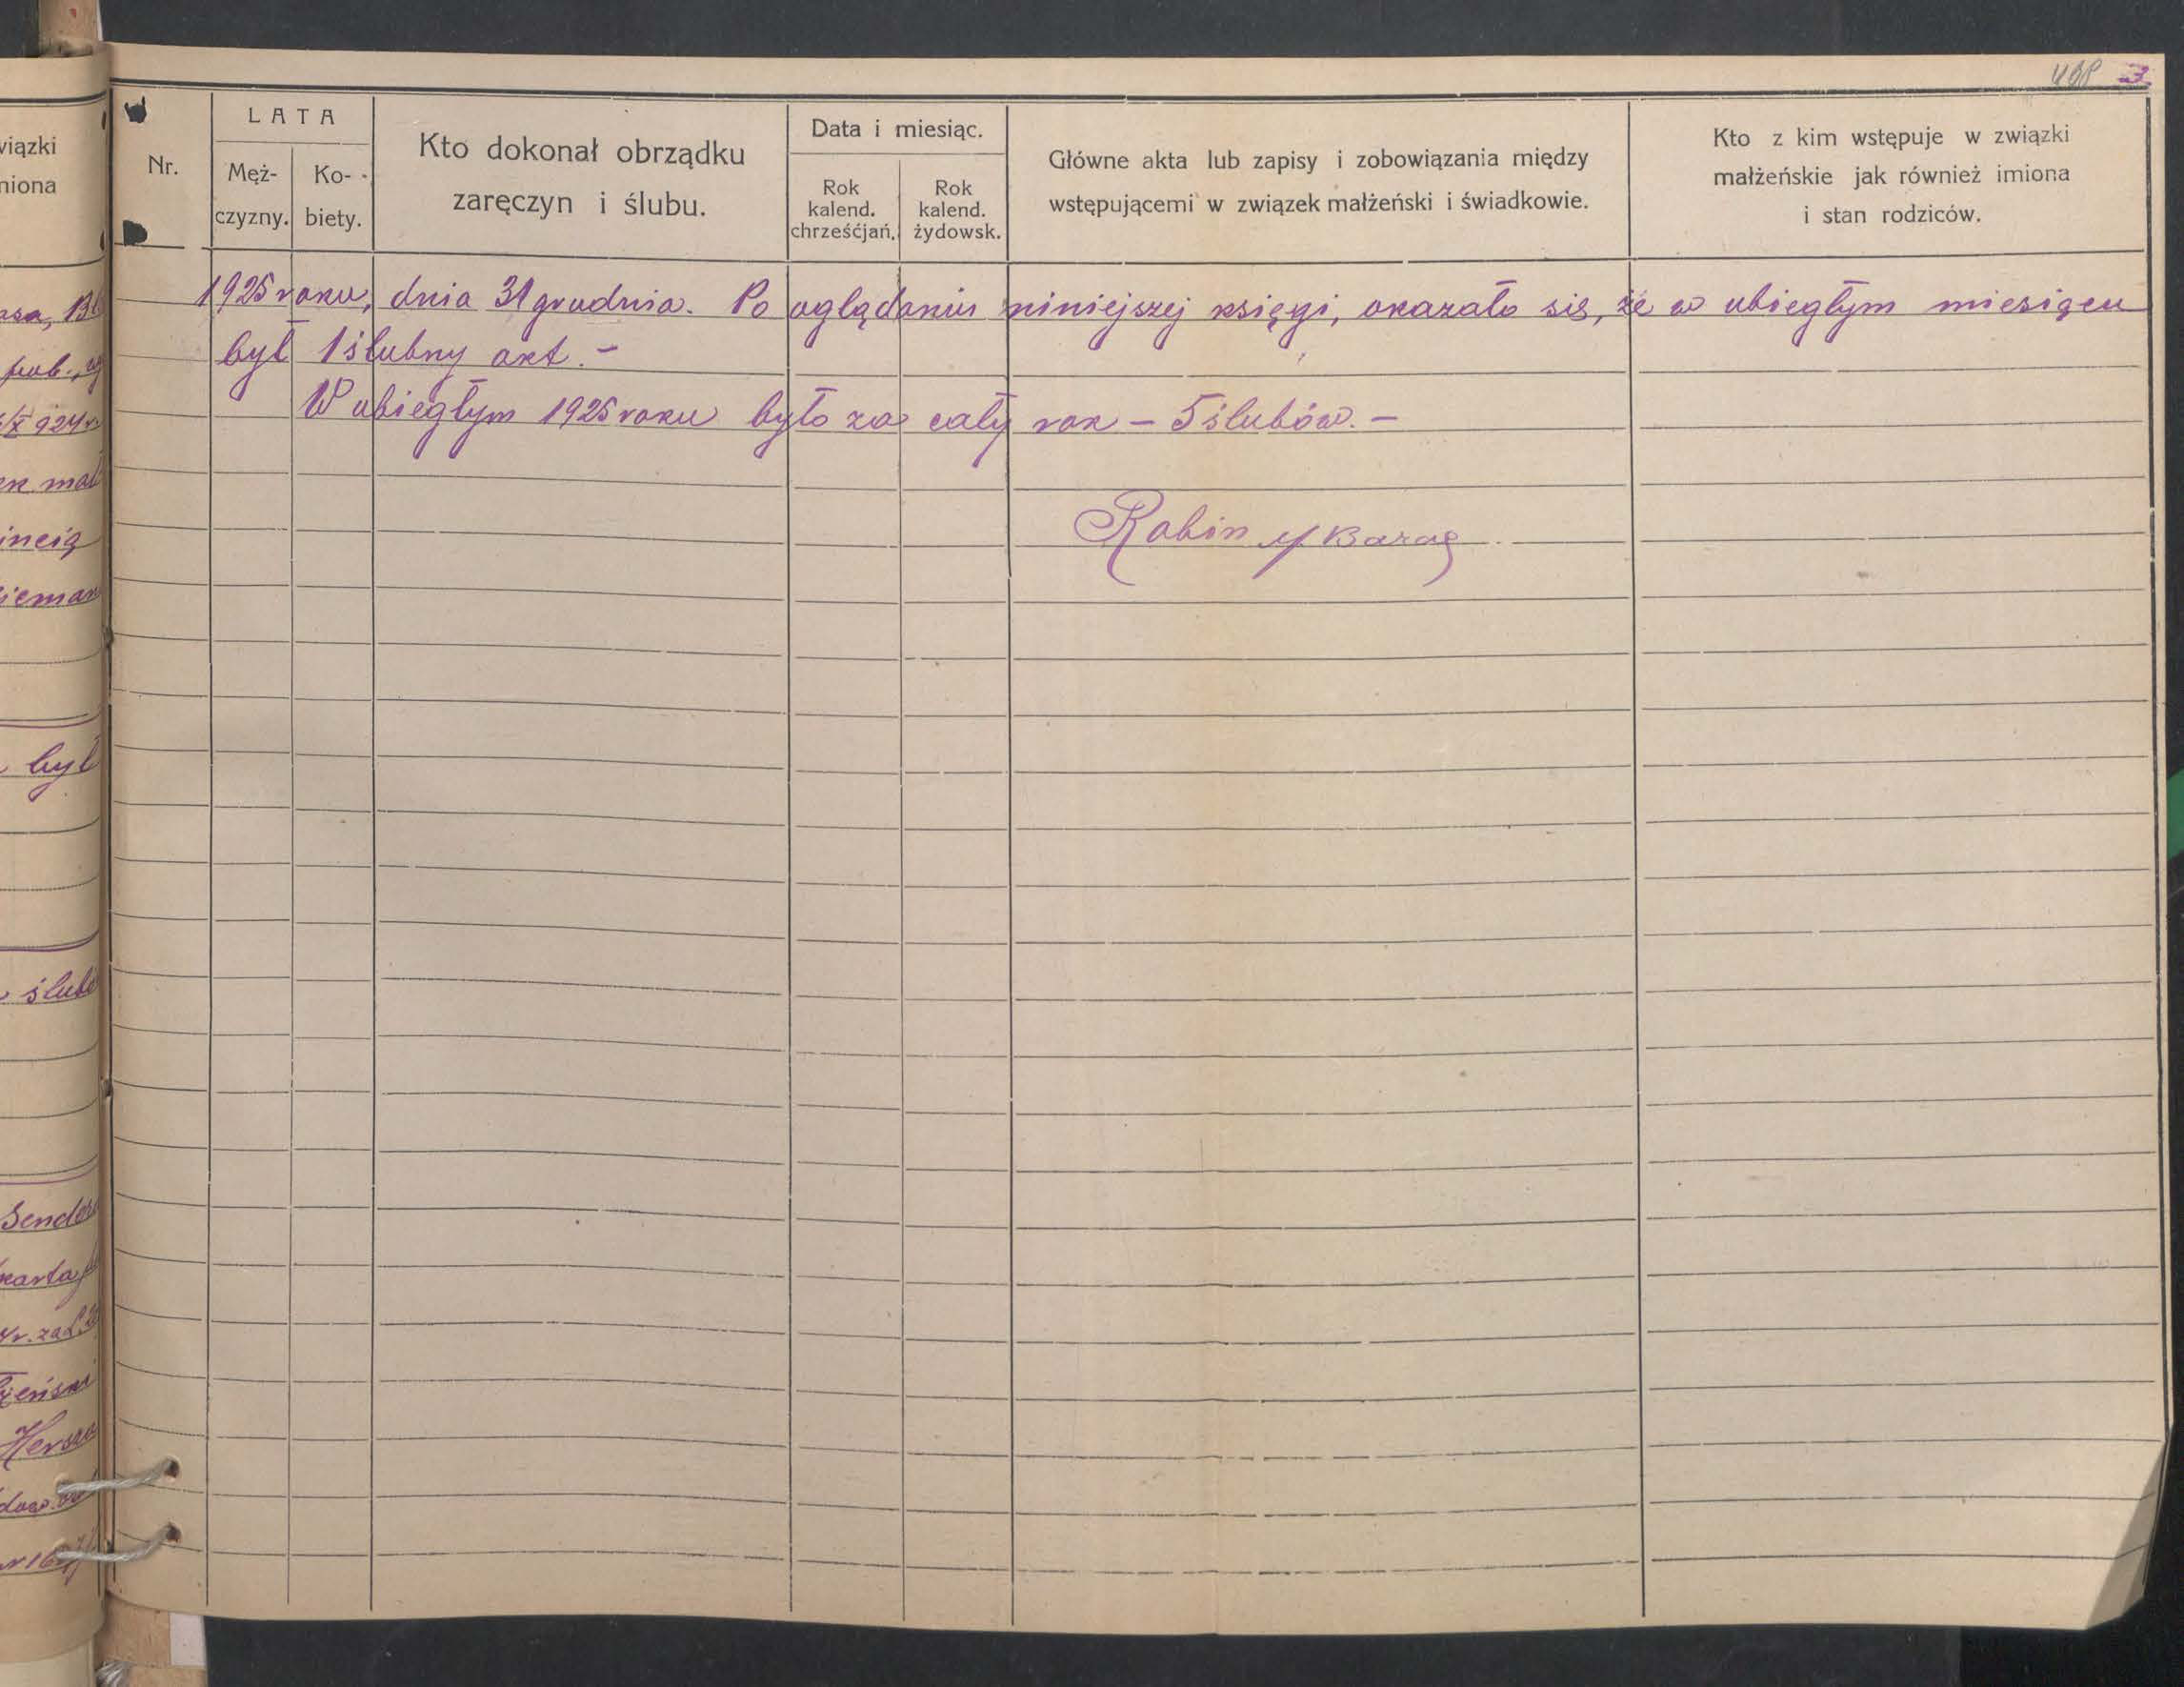 3
wiązki
miona
pob., 
924 r.
był
karta
Nr.
LATA
Męż-
czyzny.
Ko-
biety.
Kto dokonał obrządku
zaręczyn i ślubu.
Data i miesiąc.
Rok
kalend.
chrześćjań.
Rok
kalend.
żydowsk.
Główne akta lub zapisy i zobowiązania między
wstępującemi w związek małżeński i świadkowie.
Kto z kim wstępuje w związki
małżeńskie jak również imiona
i stan rodziców.
1925 roku, dnia 31 grudnia. Po oglądaniu niniejszej księgi, okazało się, że w ubiegłym miesiącu
był 1 ślubny akt. –
W ubiegłym 1925 roku było za cały rok – 5 ślubów. –
Rabin M. Barag